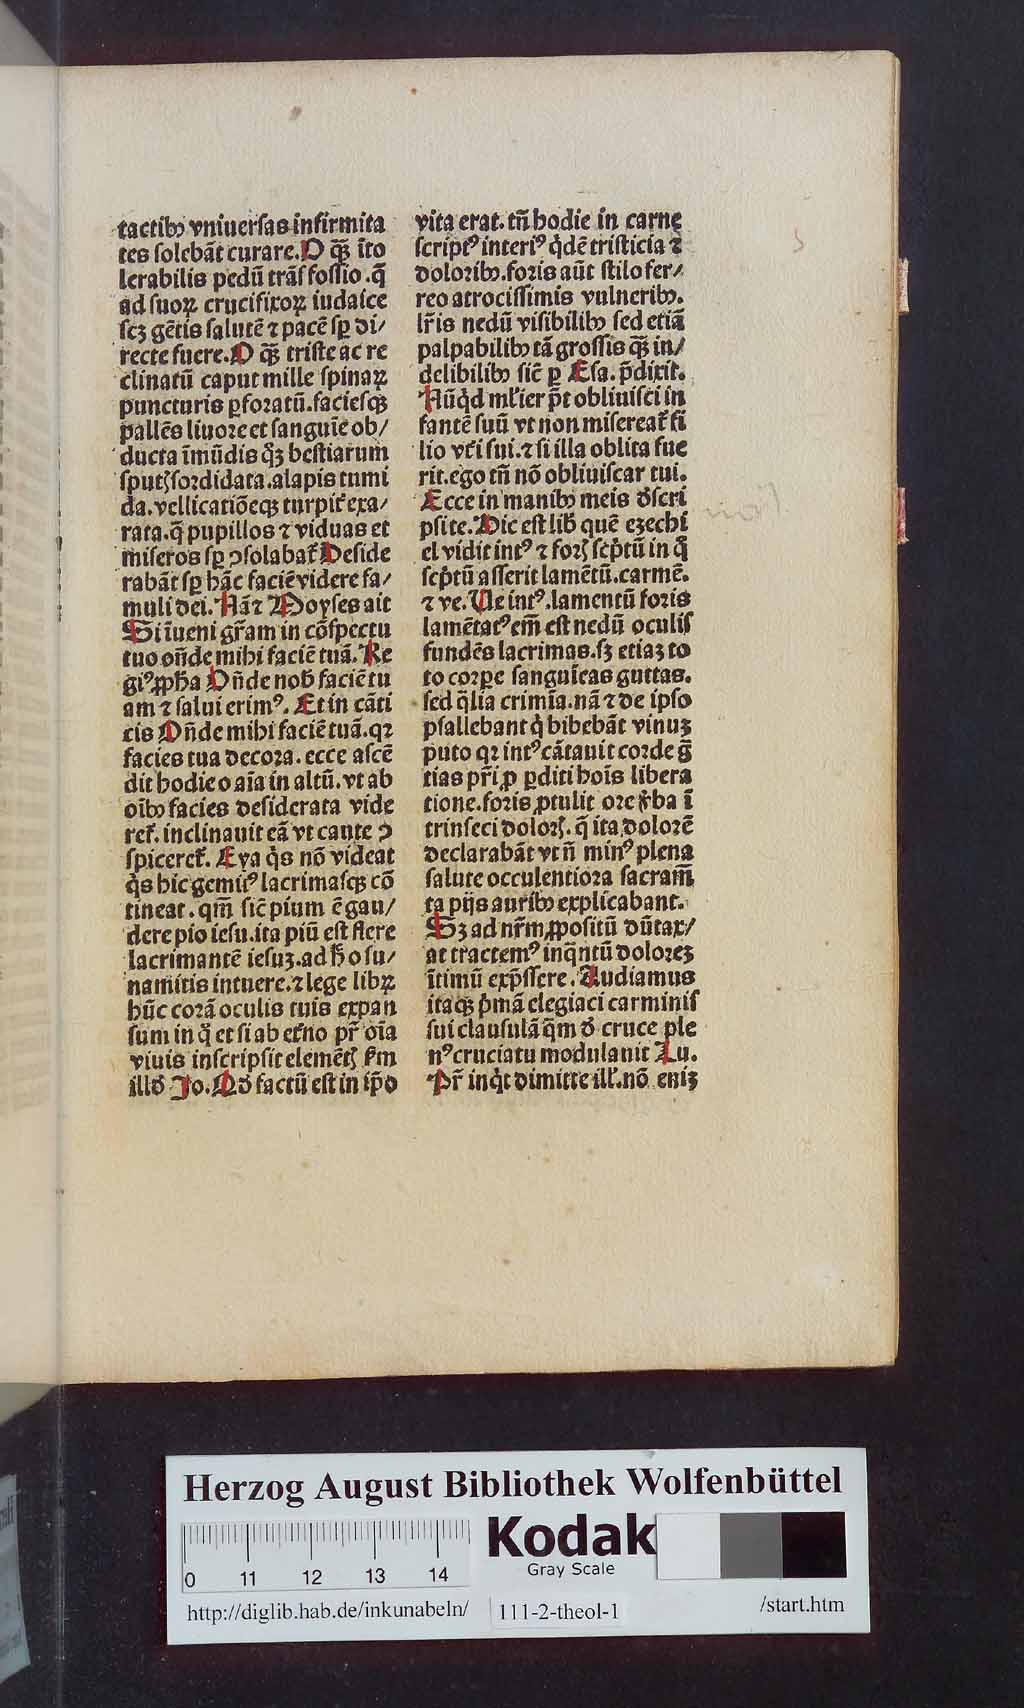 tactibꝫ vniuersas infirmita
tes solebāt curare. O qꝫ̄ īto
lerabilis pedū trāsfossio. q̄
ad suoꝝ crucifixoꝝ iudaice
scꝫ gētis salutē ⁊ pacē sꝑ di/
recte fuere. O qꝫ̄ triste ac re
clinatū caput mille spinaꝝ
puncturis ꝑforatū. faciesqꝫ
pallēs liuore et sanguīe ob/
ducta īmūdis qꝫ bestiarum
sputꝭ sordidata. alapis tumi
da. vellicatiōeqꝫ turpit᷑ exa/
rata. q̄ pupillos ⁊ viduas et
miseros sꝑ ꝯsolabat᷑ Deside
rabāt sꝑ hāc faciē videre fa/
muli dei. Nā ⁊ Moyses ait
Si īueni gr̄am in cōspectu
tuo on̄de mihi faciē tuā. Re
giꝰ ꝓph̄a On̄de nob̄ faciē tu
am ⁊ salui erimꝰ. Et in cāti
cis On̄de mihi faciē tuā. qꝛ
facies tua decora. ecce ascē
dit hodie o aīa in altū. vt ab
oībꝫ facies desiderata vide
ret᷑. inclinauit eā vt caute ꝯ
spiceret᷑. Eya q̇s nō videat
q̇s hic gemitꝰ lacrimasqꝫ cō
tineat. qm̄ sic̄ pium ē gau/
dere pio iesu. ita piū est flere
lacrimantē iesuꝫ. ad h̄ o su/
namitis intuere. ⁊ lege librꝝ
hūc corā oculis tuis expan
sum in q̊ et si ab et᷑no pr̄ oīa
viuis inscripsit elemētꝭ ẜm
illd̄ Jo. Qd̄ factū est in ip̄o
vita erat. tn̄ hodie in carne
scriptꝰ interiꝰ q̇dē tristicia ⁊
doloribꝫ. foris aūt stilo fer/
reo atrocissimis vulneribꝫ.
lr̄is nedū visibilibꝫ sed etiā
palpabilibꝫ tā grossis qꝫ̄ in/
delibilibꝫ sic̄ ꝑ Esa. p̄dixit.
Nūq̇d ml̕ier p̄t obliuisci in
fantē suū vt non misereat᷑ fi
lio vt᷑i sui. ⁊ si illa oblita fue
rit. ego tn̄ nō obliuiscar tui.
Ecce in manibꝫ meis d̄scri
psi te. Hic est lib̄ quē ezechi
el vidit intꝰ ⁊ forꝭ sc̄ptū in q̊
sc̄ptū asserit lamētū. carmē.
⁊ ve. Ve intꝰ. lamentū foris
lamētatꝰ em̄ est nedū oculis
fundēs lacrimas. sꝫ etiaꝫ to
to corpe sanguīeas guttas.
sed q̄lia crimīa. nā ⁊ de ipso
psallebant q̇ bibebāt vinuꝫ
puto qꝛ intꝰ cātauit corde gr̄
tias pr̄i ꝓ ꝑditi hoīs libera
tione. foris ꝓtulit ore v̓ba ī
trinseci dolorꝭ. q̄ ita dolorē
declarabāt vt n̄ minꝰ plena
salute occulentiora sacram̄
ta pijs auribꝫ explicabant.
Sꝫ ad nr̄m ꝓpositū dūtax/
at tractemꝰ inq̄ntū dolorez
ītimū exp̄ssere. Audiamus
itaqꝫ p̓mā elegiaci carminis
sui clausulā q̄m d̄ cruce ple
nꝰ cruciatu modulauit Lu.
Pr̄ inq̇t dimitte ill̕. nō eniꝫ
Herzog August Bibliothek Wolfenbüttel
Kodak
Gray Scale
0 11 12 13 14
http://diglib.hab.de/inkunabeln/ 111-2-theol-1 /start.htm